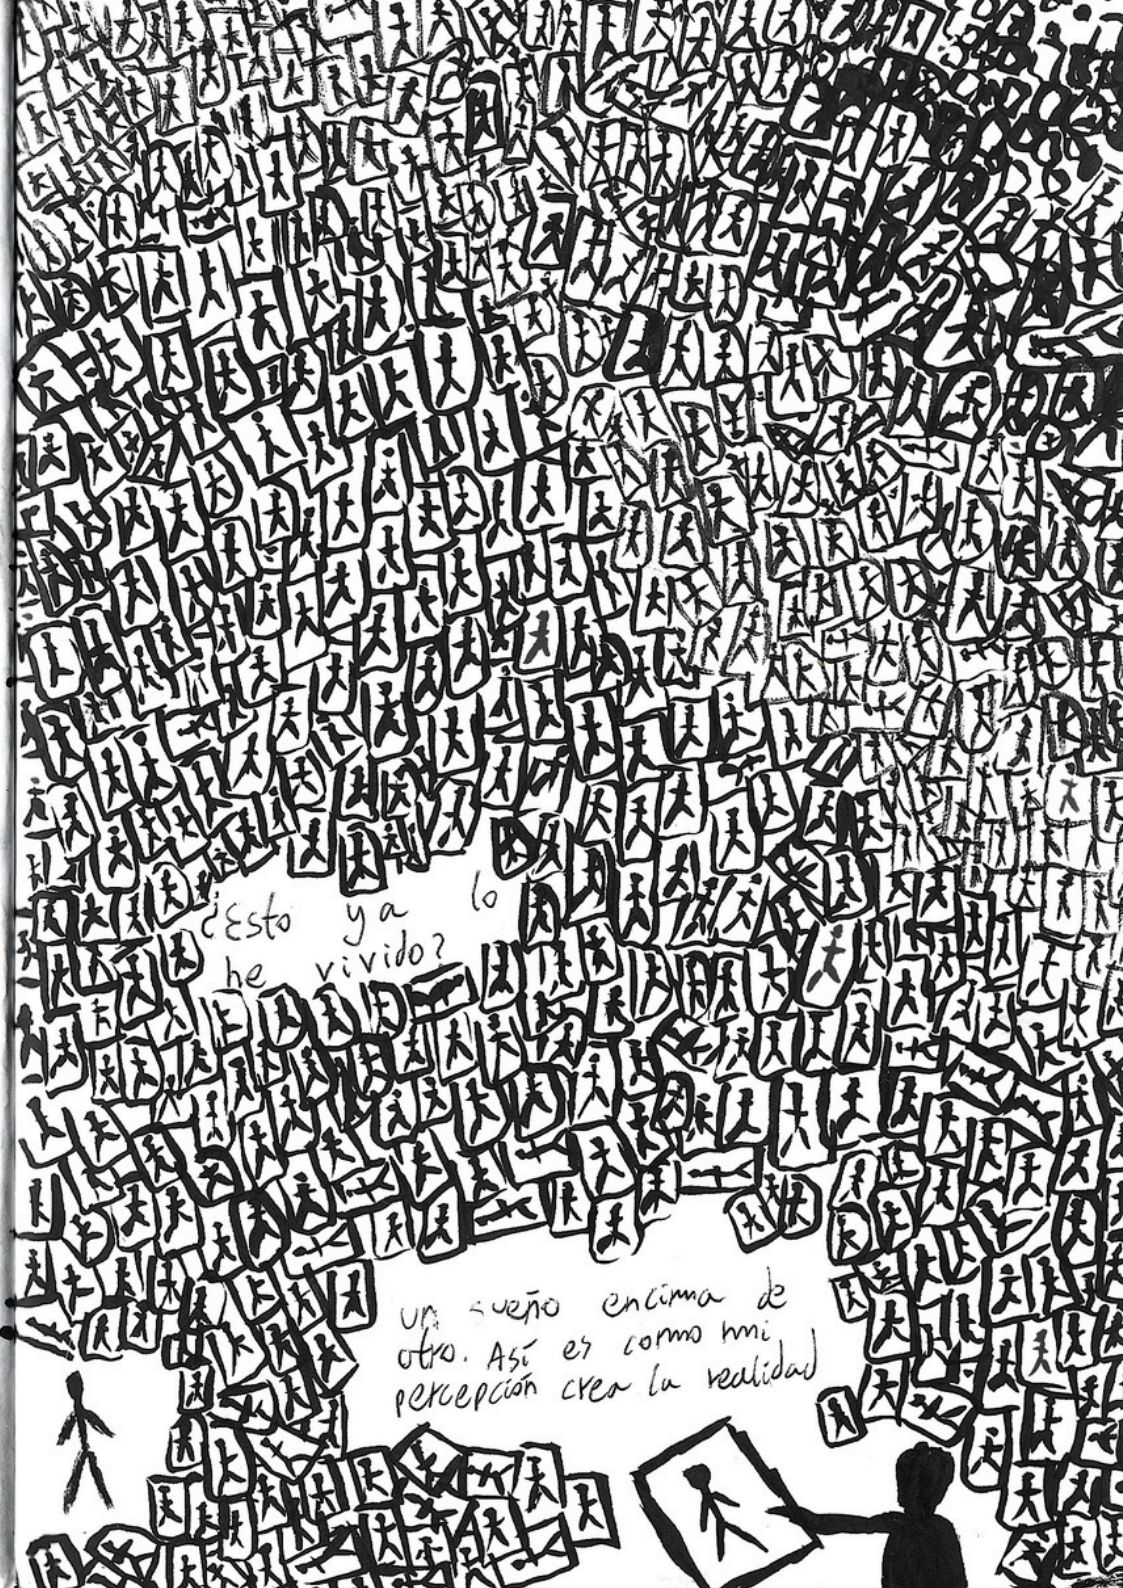 ¿Esto ya lo
he vivido?
un sueño encima de
otro. Así es como mi
percepción crea la realidad